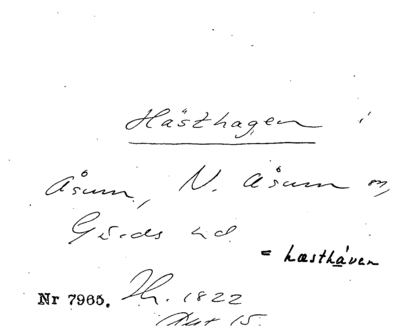 Hästhagen i
Åsum, N. Åsum sn,
Gärds hd.
= hæsthåven
Nr 7965. Th. 1822
Akt 15.